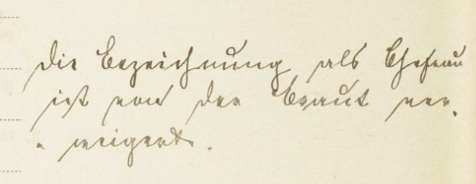 Die Bezeichnung als Ehefrau
ist von der Braut ver-
weigert.